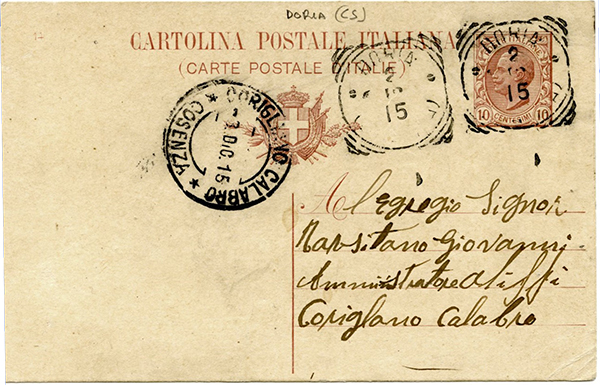 DORIA (CS)
CARTOLINA POSTALE ITALIANA
(CARTE POSTALE D'ITALIE)
DORIA
2
12
15
DORIA
2
12
15
10 CENTESIMI 10
CORIGLIANO CALABRO
* COSENZA *
2.DIC.15
All Egregio Signor
Giovanni
Amministratore
Corigliano Calabro